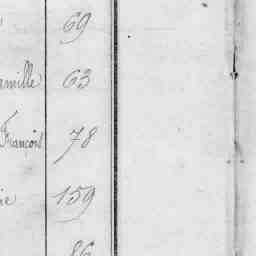 69
amille 63
François 78
ie 159
86